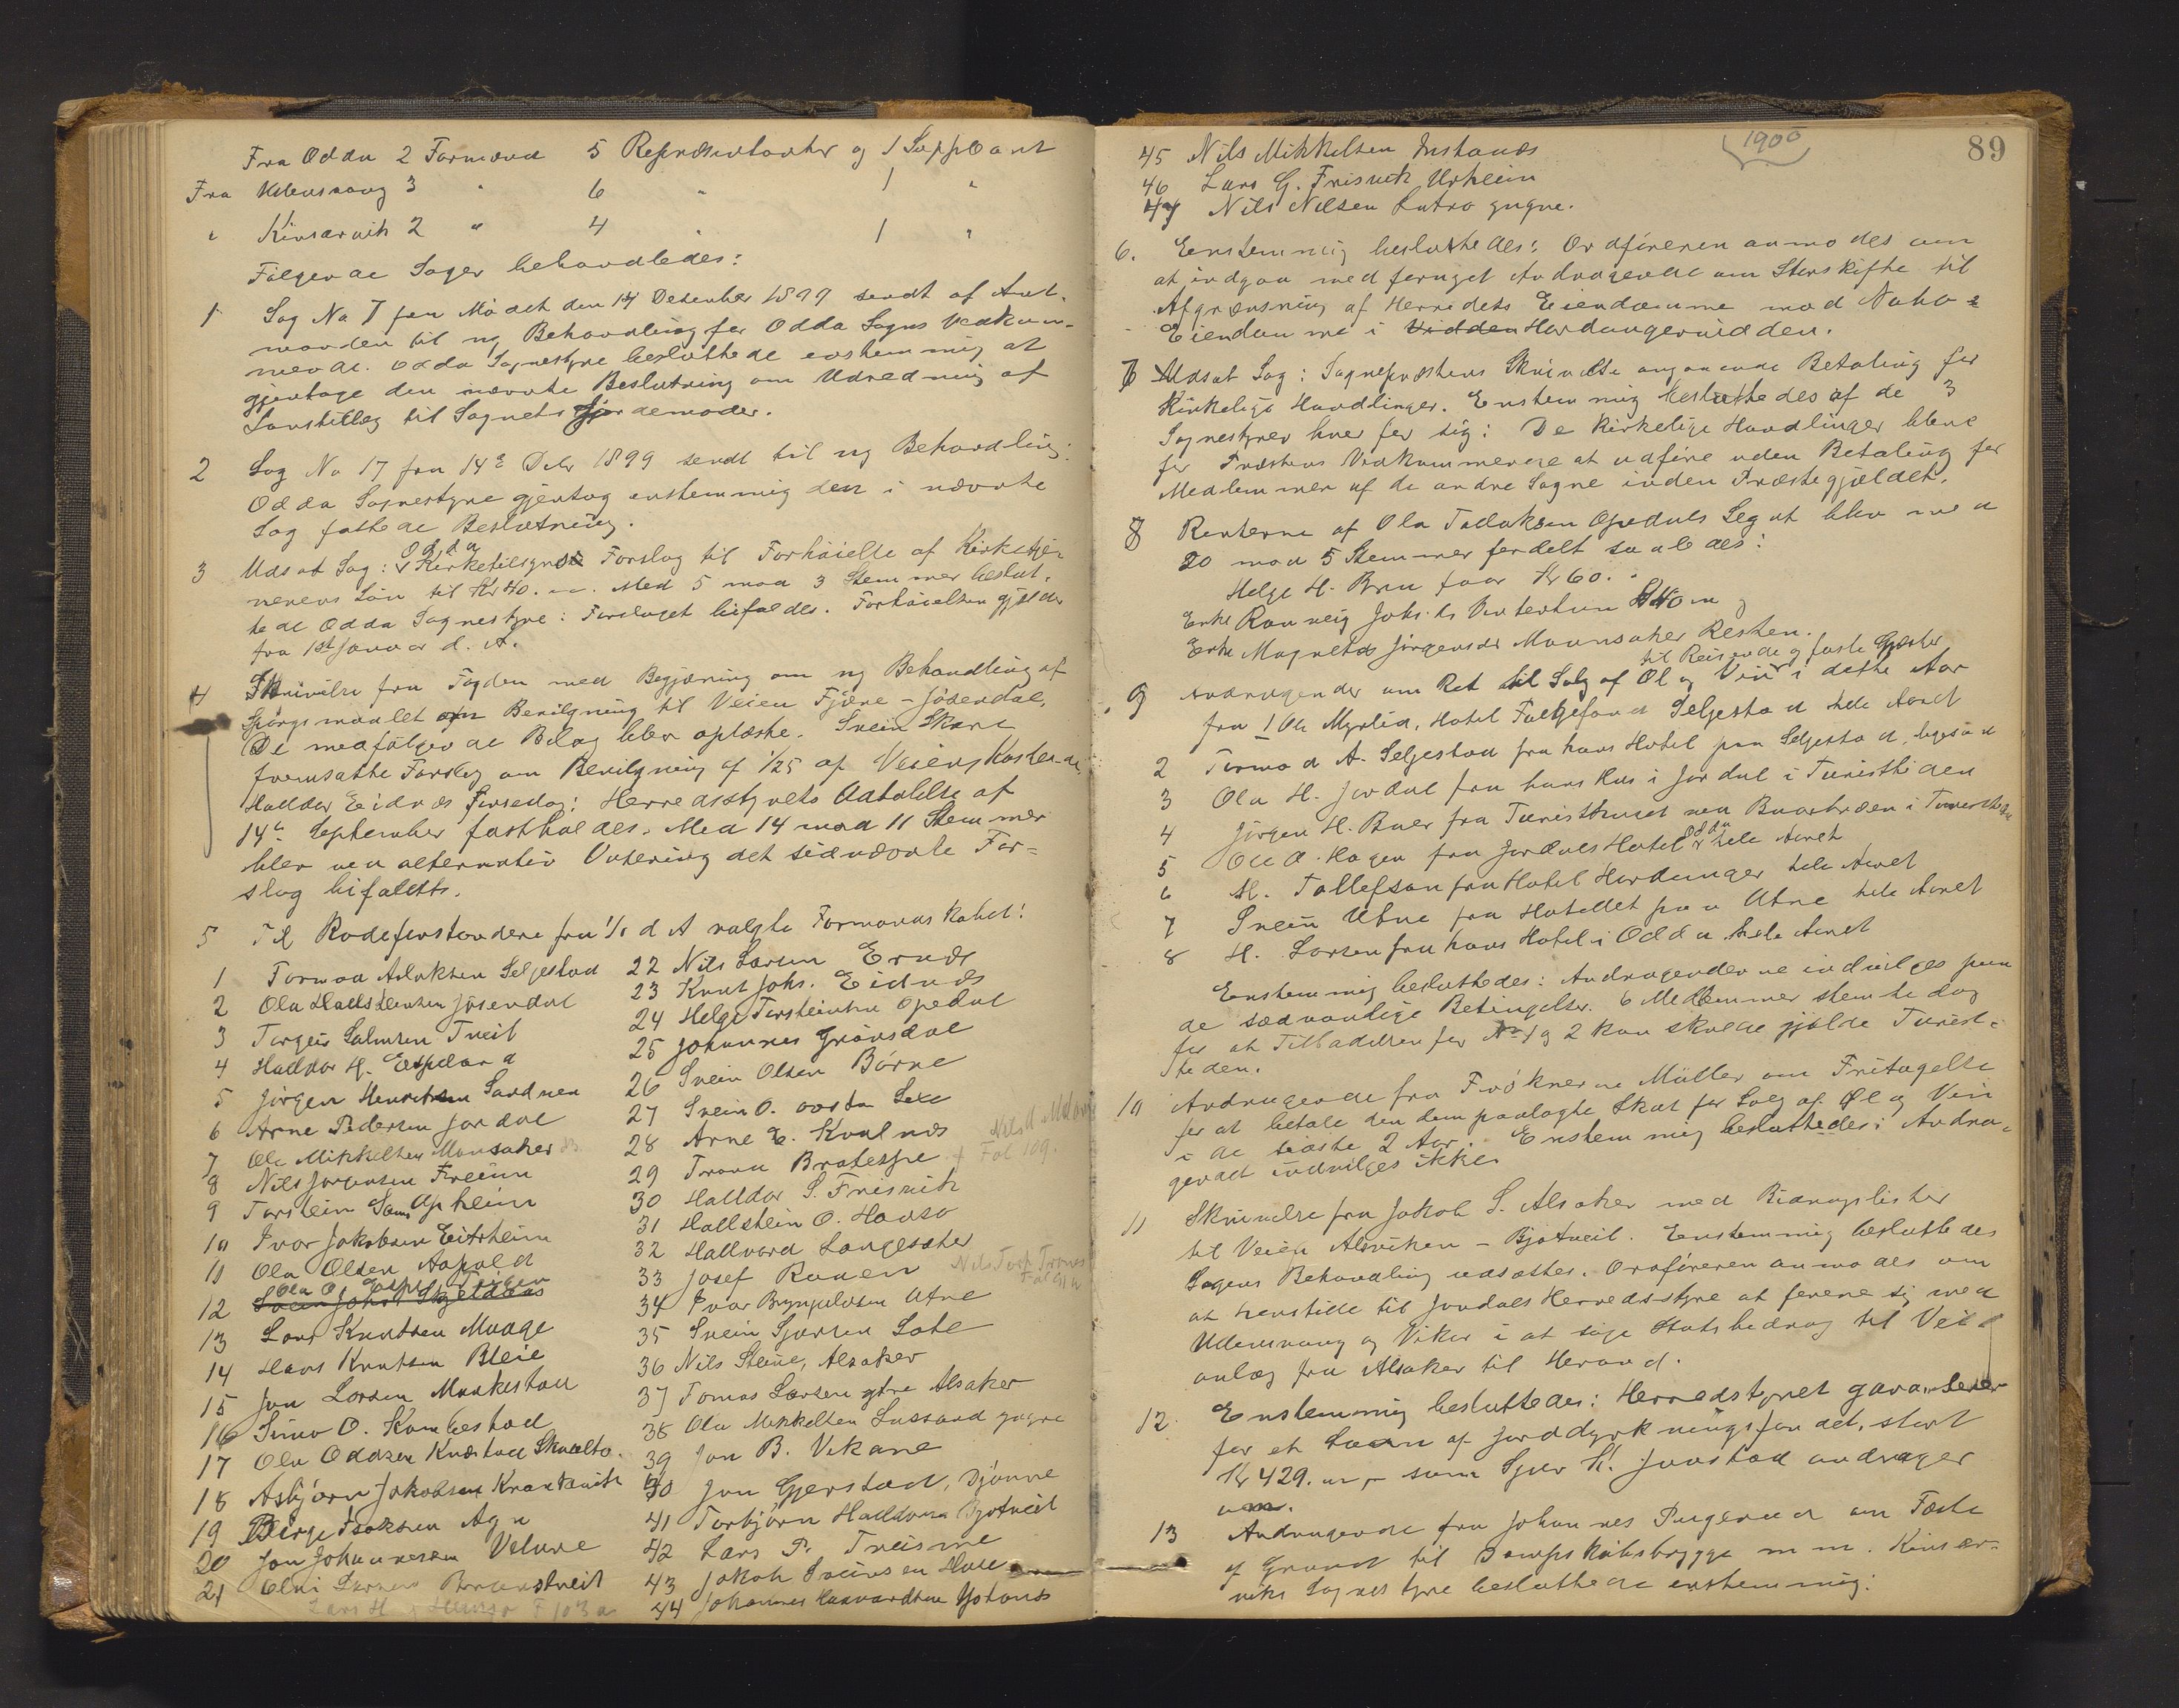 Fra Odda 2 Formænd 5 Repræsentanter og 1 Suppleant
Fra Ullensvang 3 " 6 " 1 "
" Kinservik 2 " 4 " 1 "
Følgende Sager behandledes:
1 Sag No 7 fra Mødet den 14 Desember 1899 sendt af Amt-
manden til ny Behandling for Odda Sogns Vedkom-
mende. Odda Sognestyre besluttede enstemmig at
gjentage den nævnte Beslutning om Udredning af
Lønstillæg til Sognets Gjordemoder.
2 Sag No 17 fra 14de Debr 1899 sendt til ny Behandling:
Odda Sognestyre gjentog enstemmig den i nævnte
Sag fattede Beslutning.
3 Udsat Sag: Odda Kirketilsyns Forslag til Forhøielse af Kirketje-
nerens Løn til Kr 40. Med 5 mod 3 Stemmer beslut-
tede Odda Sognestyre: Forslaget bifaldes. Forhøielsen gjælder
fra 1st Januar d. A.
4 Skrivelse fra Fogden med Begjæring om ny Behandling af
Spørgsmaalet om Bevilgning til Veien Fjære - Jøsendal.
De medfølgende Bilag blev oplæste. Svein Skare
fremsatte Forslag om Bevilgning af 1/25 af Veiens Kostende
Haldor Eidnes foreslog: Herredsstyrets Udtalelse af
14de September fastholdes. Med 14 mod 11 Stemmer
blev ved alternativ Votering det sidnævnte For=
slag bifaldt.
5 Til Rodeforstandere fra 1/1 d A valgte Formandskabet:
1 Tormod Aslaksen Seljestad
2 Ola Hallsteinsen Jøsendal
3 Torgeir Salmsen Tveit
4 Haldor H. Espeland
5 Jørgen Henriksen Sandven
6 Arne Pedersen Jordal
7 Ole Mikkelsen Mansaker
8 Nils Jørgensen Freim
9 Torstein Sams Apheim
10 Ivar Jakobsen Eitrheim
11 Ola Olsen Aapald
Ola O. Espe Teigen
12 Svein Johs Skjeldaas
13 Lars Knutsen Maage
14 Hans Knutsen Bleie
15 Jon Larsen Mankestad
16 Simo O. Kambestad
17 Ola Oddsen Knæstad Skaalto.
18 Asbjørn Jakobsen Krantveit
19 Børge Isaksen Aga
20 Jon Johannesen Velure
21 Elni Larsen
Lars H. F 103 a
22 Nils Larsen Ernæs
23 Knut Johs. Eidnæs
24 Helge Torsteinsen Opedal
25 Johannes Grønsdal
26 Svein Olsen Børve
27 Svein O. Sexe
28 Arne E. Kvalnæs
29 Traan Bratespe + Fol 109.
30 Halldor S. Fresvik
31 Hallstein O. Hauso
32 Hallvard Langesæter
33 Josef Raaen
34 Ivar Brynjulvsen Utne
35 Svein Sjursen Lote
36 Nils Steine, Alsaker
37 Tomas Larsen ytre Alsaker
38 Ola Mikkelsen Lussand yngre
39 Jon B. Vikane
40 Jon Gjerstad, Djønne
41 Torbjørn Halldorsen Bjotveit
42 Lars P. Treisme
43 Jakob Sveinsen
44 Johannes Haavardsen Ystanæs
1900
89
45 Nils Mikkelsen Instanæs
46 Lars G. Frisvik Urheim
47 Nils Nilsen Lutro yngre.
6. Enstemmig besluttedes: Ordføreren anmodes om
at indgaa med fornyet Andragende om Utskifte til
Afgrænsning af Herredets Eiendomme mod Nabo=
Eiendomme i Vidden Hardangervidden.
7 Udsat Sag: Sogneprestens Skrivelse angaaende Betaling for
Kirkelige Handlinger. Enstemmig besluttedes af de 3
Sognestyrer hver for sig: De kirkelige Handlinger bleve
for Præstens Vedkommende at udføre uden Betaling for
Medlemmer af de andre Sogne inden Præstegjældet.
8 Renterne af Ola Tollaksen Opedals Legat blev med
20 mod 5 Stemmer fordelt saaledes:
Helge H. Bru faar Kr 60.
Enke Ranneig Johs.dr Vintertun 40 og
Enke Magnild Jørgensdr Maansaker Resten.
til Reisende og faste Gjæster
9 Andragender om Ret til Salg af Øl og Vin i dette Aar
fra 1 Ole Myrlid, Hotel Folgefond Seljestad hele Aaret
2 Tormod A. Seljestad fra hans Hotel paa Seljestad, ligesaa
3 Ola H. Jordal fra hans Hus i Jordal i Turisttiden
4 Jørgen H. Buer fra Turisthuset ved Buarbræen i Turisttiden
5 Ole O. Hagen fra Jordals Hotel Odda hele Aaret
6 M. Tollefsen fra Hotel Hardanger hele Aaret
7 Svein Utne fra Hotellet paa Utne hele Aaret
8 H. Larsen fra hans Hotel i Odda hele Aaret
Enstemmig besluttedes: Andragenderne indvilges paa
de sædvanlige Betingelser. 6 Medlemmer stemte dog
for at Tilladelsen for No 1 og 2 kun skulde gjælde Turist-
tiden.
10 Andragende fra Frøknerne Müller om Fritagelse
for at betale den dem paalagte Skat for Salg af Øl og Vin
i de sidste 2 Aar. Enstemmig besluttedes: Andra-
gendet indvilges ikke.
11 Skrivelse fra Jakob S. Alsaker med Bidragslister
til Veien Alsviken - Bjotveit. Enstemmig besluttedes
Sagens Behandling udsættes. Ordføreren anmodes om
at henstille til Jondals Herredsstyre at forene sig med
Ullensvang og Vikør i at søge Statsbedrag til Vei-
anlæg fra Alsaker til Herand.
12. Enstemmig besluttedes: Herredstyret garanterer
for et Laan af Jorddyrkningsfondet, stort
Kr 429. som Sjur K. Jaastad andrager
om.
13 Andragende fra Johannes Ringerud om Fæste
af Grund til Dampskibsbrygge m m. Kinser-
viks Sognestyre besluttede enstemmig: